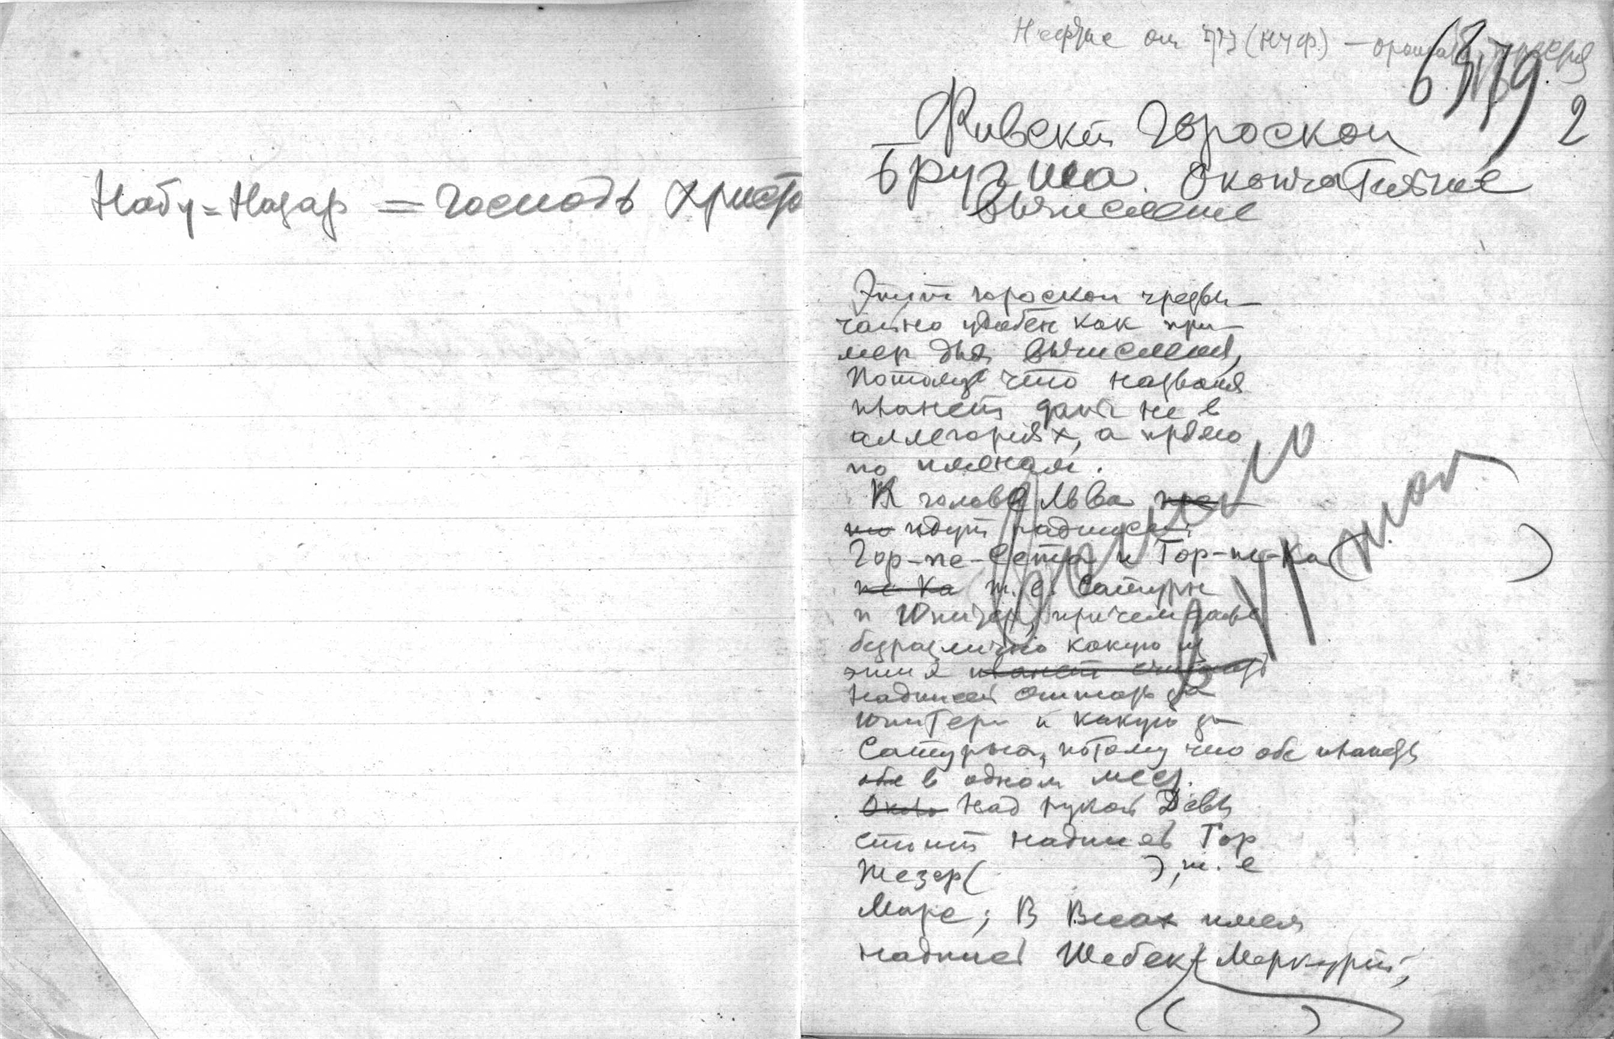 Набу-Назар = господь Христо
Нефие от (НЧФ) —
63/19
2
Фивский Гороскоп
Бругша. Окончательные
вычисление
Этит гороскоп чрезвы-
чайно удобен как при-
мер для вычисления,
потому что названия
планет даны не в
аллегориях, а прямо
по именам.
К голове Льва
идут надписи
Гор-пе-Сета и Гор-пе-Ка ( )
пе Ка т. е. Сатурн
и Юпитер, причем даже
безразлично какую из
этих планет считать
надписей отнюдь за
Юпитера и какую за
Сатурна, потому что обе планеты
обе в одном мест.
Около Над рукой Девы
стоит надпись Гор
Тезер ( ), т. е
Марс; В Весах имея
надпись Шебек (Меркурий,
( )